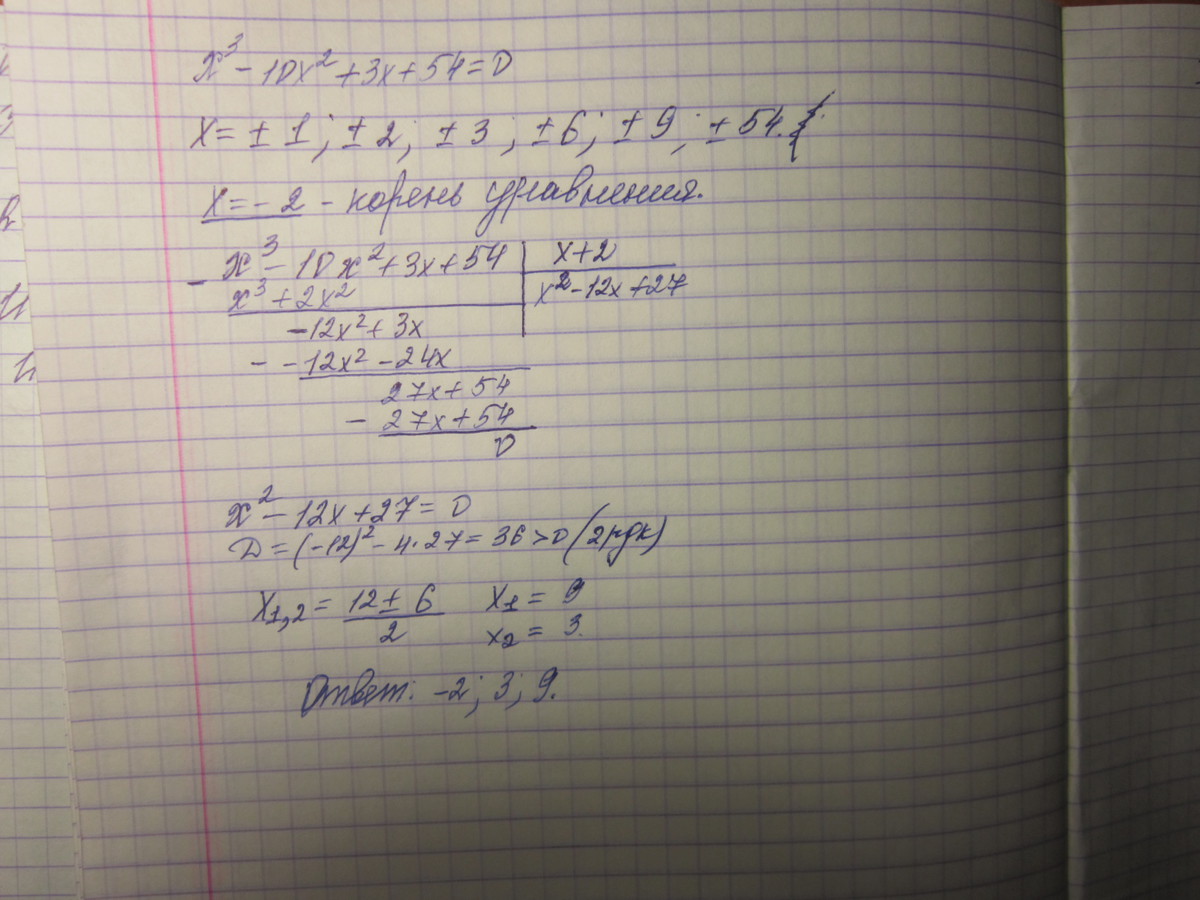 x³ - 10x² + 3x + 54 = 0
x = ± 1; ± 2; ± 3; ± 6; ± 9; ± 54.
x = - 2 - корень уравнения.
- x³ - 10x² + 3x + 54 | x + 2
x³ + 2x² | x² - 12x + 27
-12x² + 3x
- -12x² - 24x
27x + 54
- 27x + 54
0
x² - 12x + 27 = 0
D = (-12)² - 4·27 = 36 > 0 (2 рдк)
x1,2 = (12 ± 6)/2 x1 = 9
x2 = 3
Ответ: -2; 3; 9.